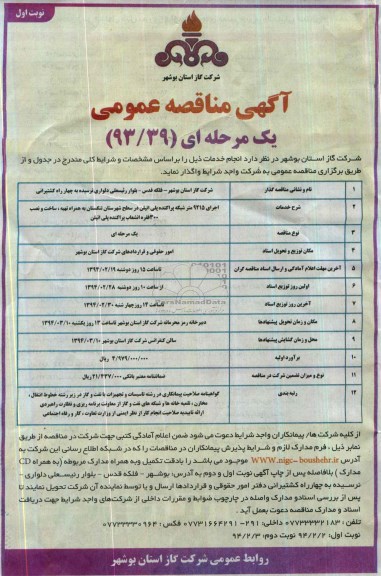 نوبت اول
شرکت گاز استان بوشهر
آگهی مناقصه عمومی
یک مرحله ای (۹۳/۳۹)
شرکت گاز استان بوشهر در نظر دارد انجام خدمات ذیل را براساس مشخصات و شرایط کلی مندرج در جدول و از
طریق برگزاری مناقصه عمومی به شرکت واجد شرایط واگذار نماید.
۱ نام و نشانی مناقصه گذار شرکت گاز استان بوشهر - فلکه قدس - بلوار رئیسعلی دلواری نرسیده به چهار راه کشتیرانی
۲ شرح خدمات اجرای ۹۲۱۵ متر شبکه پراکنده پلی اتیلن در سطح شهرستان تنگستان به همراه تهیه، ساخت و نصب
۳۰۰ فقره انشعاب پراکنده پلی اتیلن
۳ نوع مناقصه یک مرحله ای
۴ مکان توزیع و تحویل اسناد امور حقوقی و قراردادهای شرکت گاز استان بوشهر
۵ آخرین مهلت اعلام آمادگی و ارسال اسناد مناقصه گران تا ساعت ۱۵ روز دوشنبه ۱۳۹۴/۰۲/۱۴
۶ اولین روز توزیع اسناد از ساعت ۱۰ روز دوشنبه ۱۳۹۴/۰۲/۲۸
۷ آخرین روز توزیع اسناد تا ساعت ۱۴ روز چهار شنبه ۱۳۹۴/۰۲/۳۰
۸ مکان و زمان تحویل پیشنهادها دبیرخانه رمز محرمانه شرکت گاز استان بوشهر تا ساعت ۱۴ روز یکشنبه ۱۳۹۴/۰۳/۱۰
۹ محل و زمان گشایش پیشنهادها سالن کنفرانس شرکت گاز استان بوشهر ۱۳۹۴/۰۳/۱۰
۱۰ برآورد اولیه ۴/۹۷۹/۰۰۰/۰۰۰ ریال
۱۱ نوع و میزان تضمین شرکت در مناقصه ضمانتنامه معتبر بانکی ۲۱/۴۳۷/۰۰۰ ریال
۱۲ رتبه بندی گواهینامه صلاحیت پیمانکاری در رشته تاسیسات و تجهیزات یا نفت و گاز در زیر رشته خطوط انتقال،
مخازن، تلمبه خانه ها و شبکه های نفت و گاز از معاونت برنامه ریزی و نظارت راهبردی
ارائه تاییدیه صلاحیت انجام کار از نظر ایمنی از وزارت تعاون، کار و رفاه اجتماعی
از کلیه شرکت ها، پیمانکاران واجد شرایط دعوت می شود ضمن اعلام آمادگی کتبی جهت شرکت در مناقصه از طریق
نمابر ذیل، فرم مدارک لازم و شرایط پذیرش پیمانکاران در مناقصات را که در شبکه اطلاع رسانی این شرکت به
آدرس www.nigc-booshehr.ir موجود می باشد را بادقت تکمیل و به همراه مدارک مربوطه (به همراه CD
مدارک) بلافاصله پس از چاپ آگهی نوبت اول و دوم به آدرس: بوشهر - فلکه قدس - بلوار رئیسعلی دلواری -
نرسیده به چهارراه کشتیرانی دفتر امور حقوقی و قراردادها ارسال و یا توسط نماینده آن شرکت تحویل نمایند تا
پس از بررسی اسناد و مدارک واصله در چارچوب ضوابط و مقررات داخلی از شرکت‌های واجد شرایط جهت دریافت
اسناد و مدارک مناقصه دعوت بعمل آید.
تلفن: ۰۷۷۳۳۳۳۲۱۸۳ داخلی ۲۹۱ - ۰۷۷۳۱۶۶۴۲۹۱ فکس: ۰۷۷۳۳۳۳۰۹۶۴
نوبت اول: ۹۴/۲/۲ نوبت دوم: ۹۴/۲/۳
روابط عمومی شرکت گاز استان بوشهر